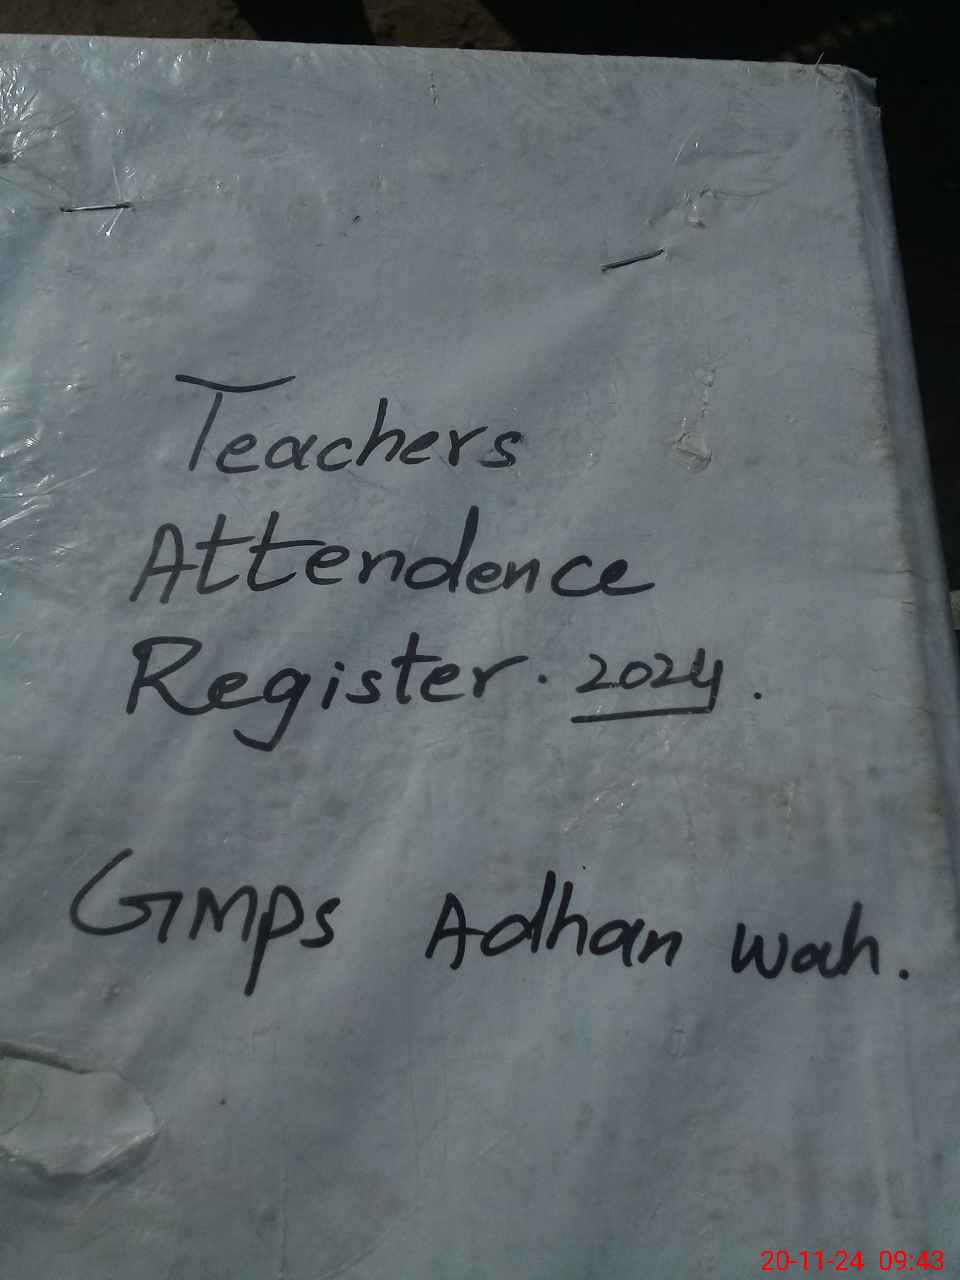 Teachers
Attendence
Register. 2024.
GMPS Adhan wah.
20-11-24 09:43